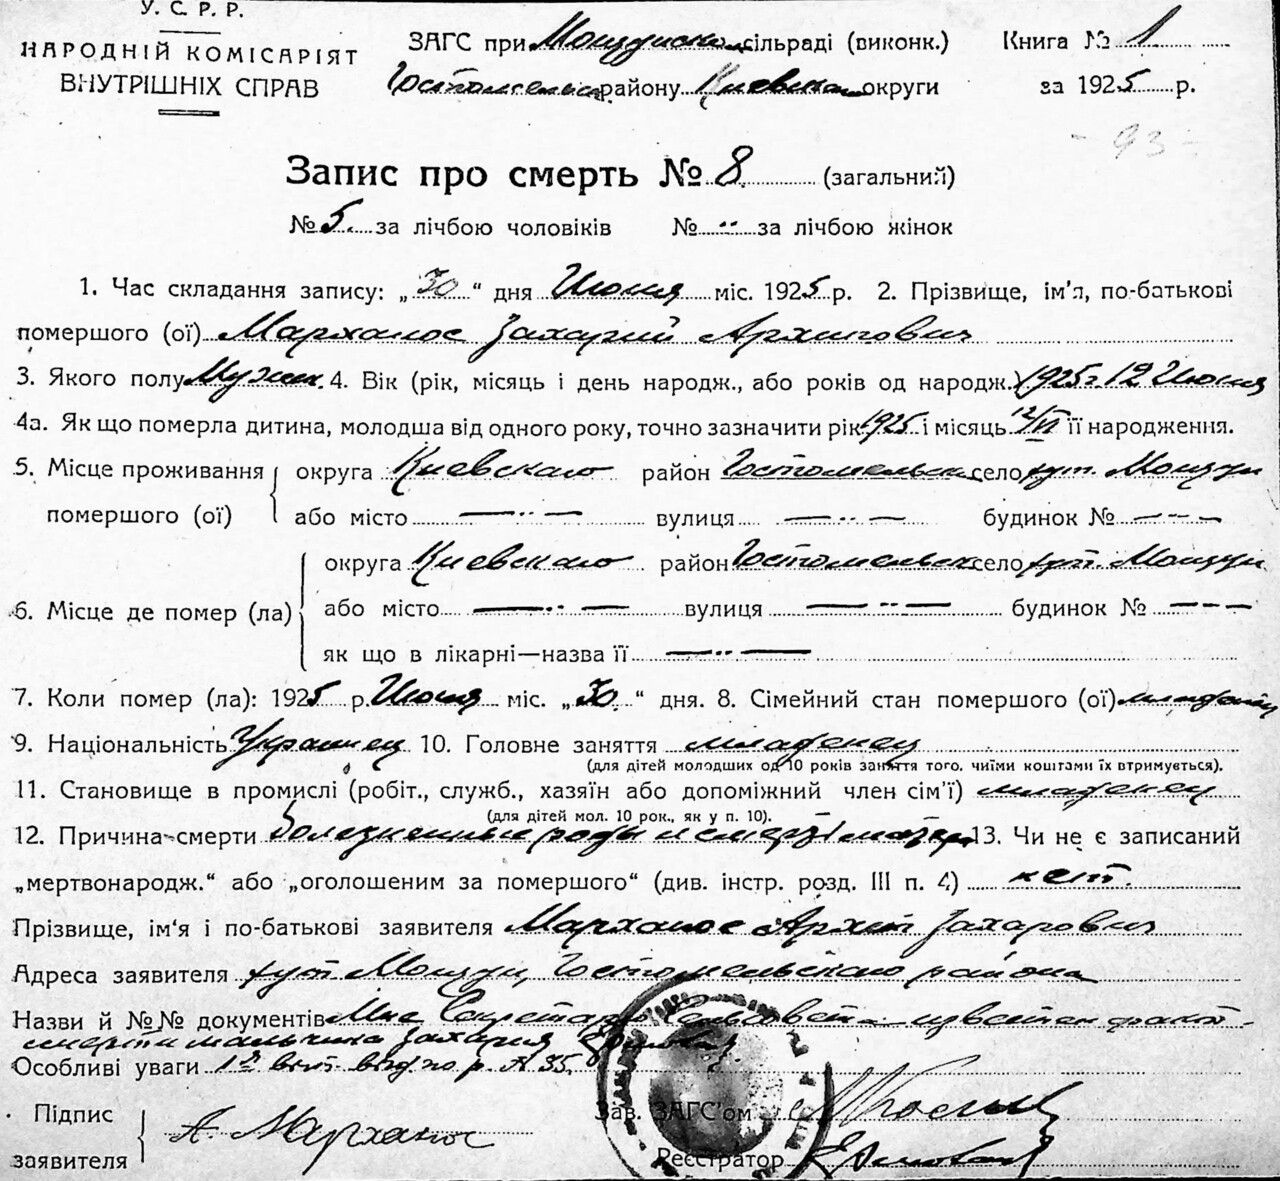 У. С. Р. Р.
НАРОДНІЙ КОМІСАРІЯТ
ВНУТРІШНІХ СПРАВ
ЗАГС при Мощунском сільраді (виконк.)
Гостомельск. району Киевской округи
Книга № 1
за 1925 р.
- 93 -
Запис про смерть № 8 (загальний)
№ 5 за лічбою чоловіків № -"- за лічбою жінок
1. Час складання запису: „30" дня Июня міс. 1925 р. 2. Прізвище, ім'я, по-батькові
помершого (ої) Марханос Захарий Архипович
3. Якого полу Мужск. 4. Вік (рік, місяць і день народж., або років од народж.) 1925 г 12 Июня
4а. Як що померла дитина, молодша від одного року, точно зазначити рік 1925 і місяць 12/VI її народження.
5. Місце проживання помершого (ої) округа Киевского район Гостомельск село хут. Мощун
або місто — " — вулиця — " — будинок № - - -
6. Місце де помер (ла) округа Киевского район Гостомельск село хут. Мощун
або місто — " — вулиця — " — будинок № - - -
як що в лікарні—назва її — " —
7. Коли помер (ла): 1925 р. Июня міс. „30" дня. 8. Сімейний стан помершого (ої) младенец
9. Національність Украинец 10. Головне заняття младенец
(для дітей молодших од 10 років заняття того, чиїми коштами їх втримується).
11. Становище в промислі (робіт., служб., хазяїн або допоміжний член сім'ї) младенец
(для дітей мол. 10 рок., як у п. 10).
12. Причина смерти Болезненные роды и смерть матери 13. Чи не є записаний
„мертвонародж." або „оголошеним за помершого" (див. інстр. розд. III п. 4) нет.
Прізвище, ім'я і по-батькові заявителя Марханос Архип Захарович
Адреса заявителя хут Мощун, Гостомельского района
Назви й №№ документів Мне Секретарю Сельсовета известен факт
смерти мальчика Захария
Особливі уваги
Підпис заявителя А. Марханос
Зав. ЗАГС'ом
Реєстратор